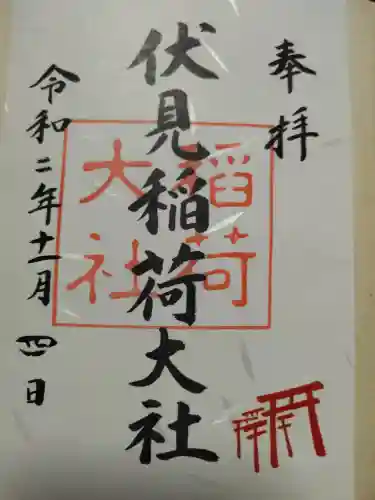 奉拝
伏見稲荷大社
稲荷
大社
令和二年十一月四日